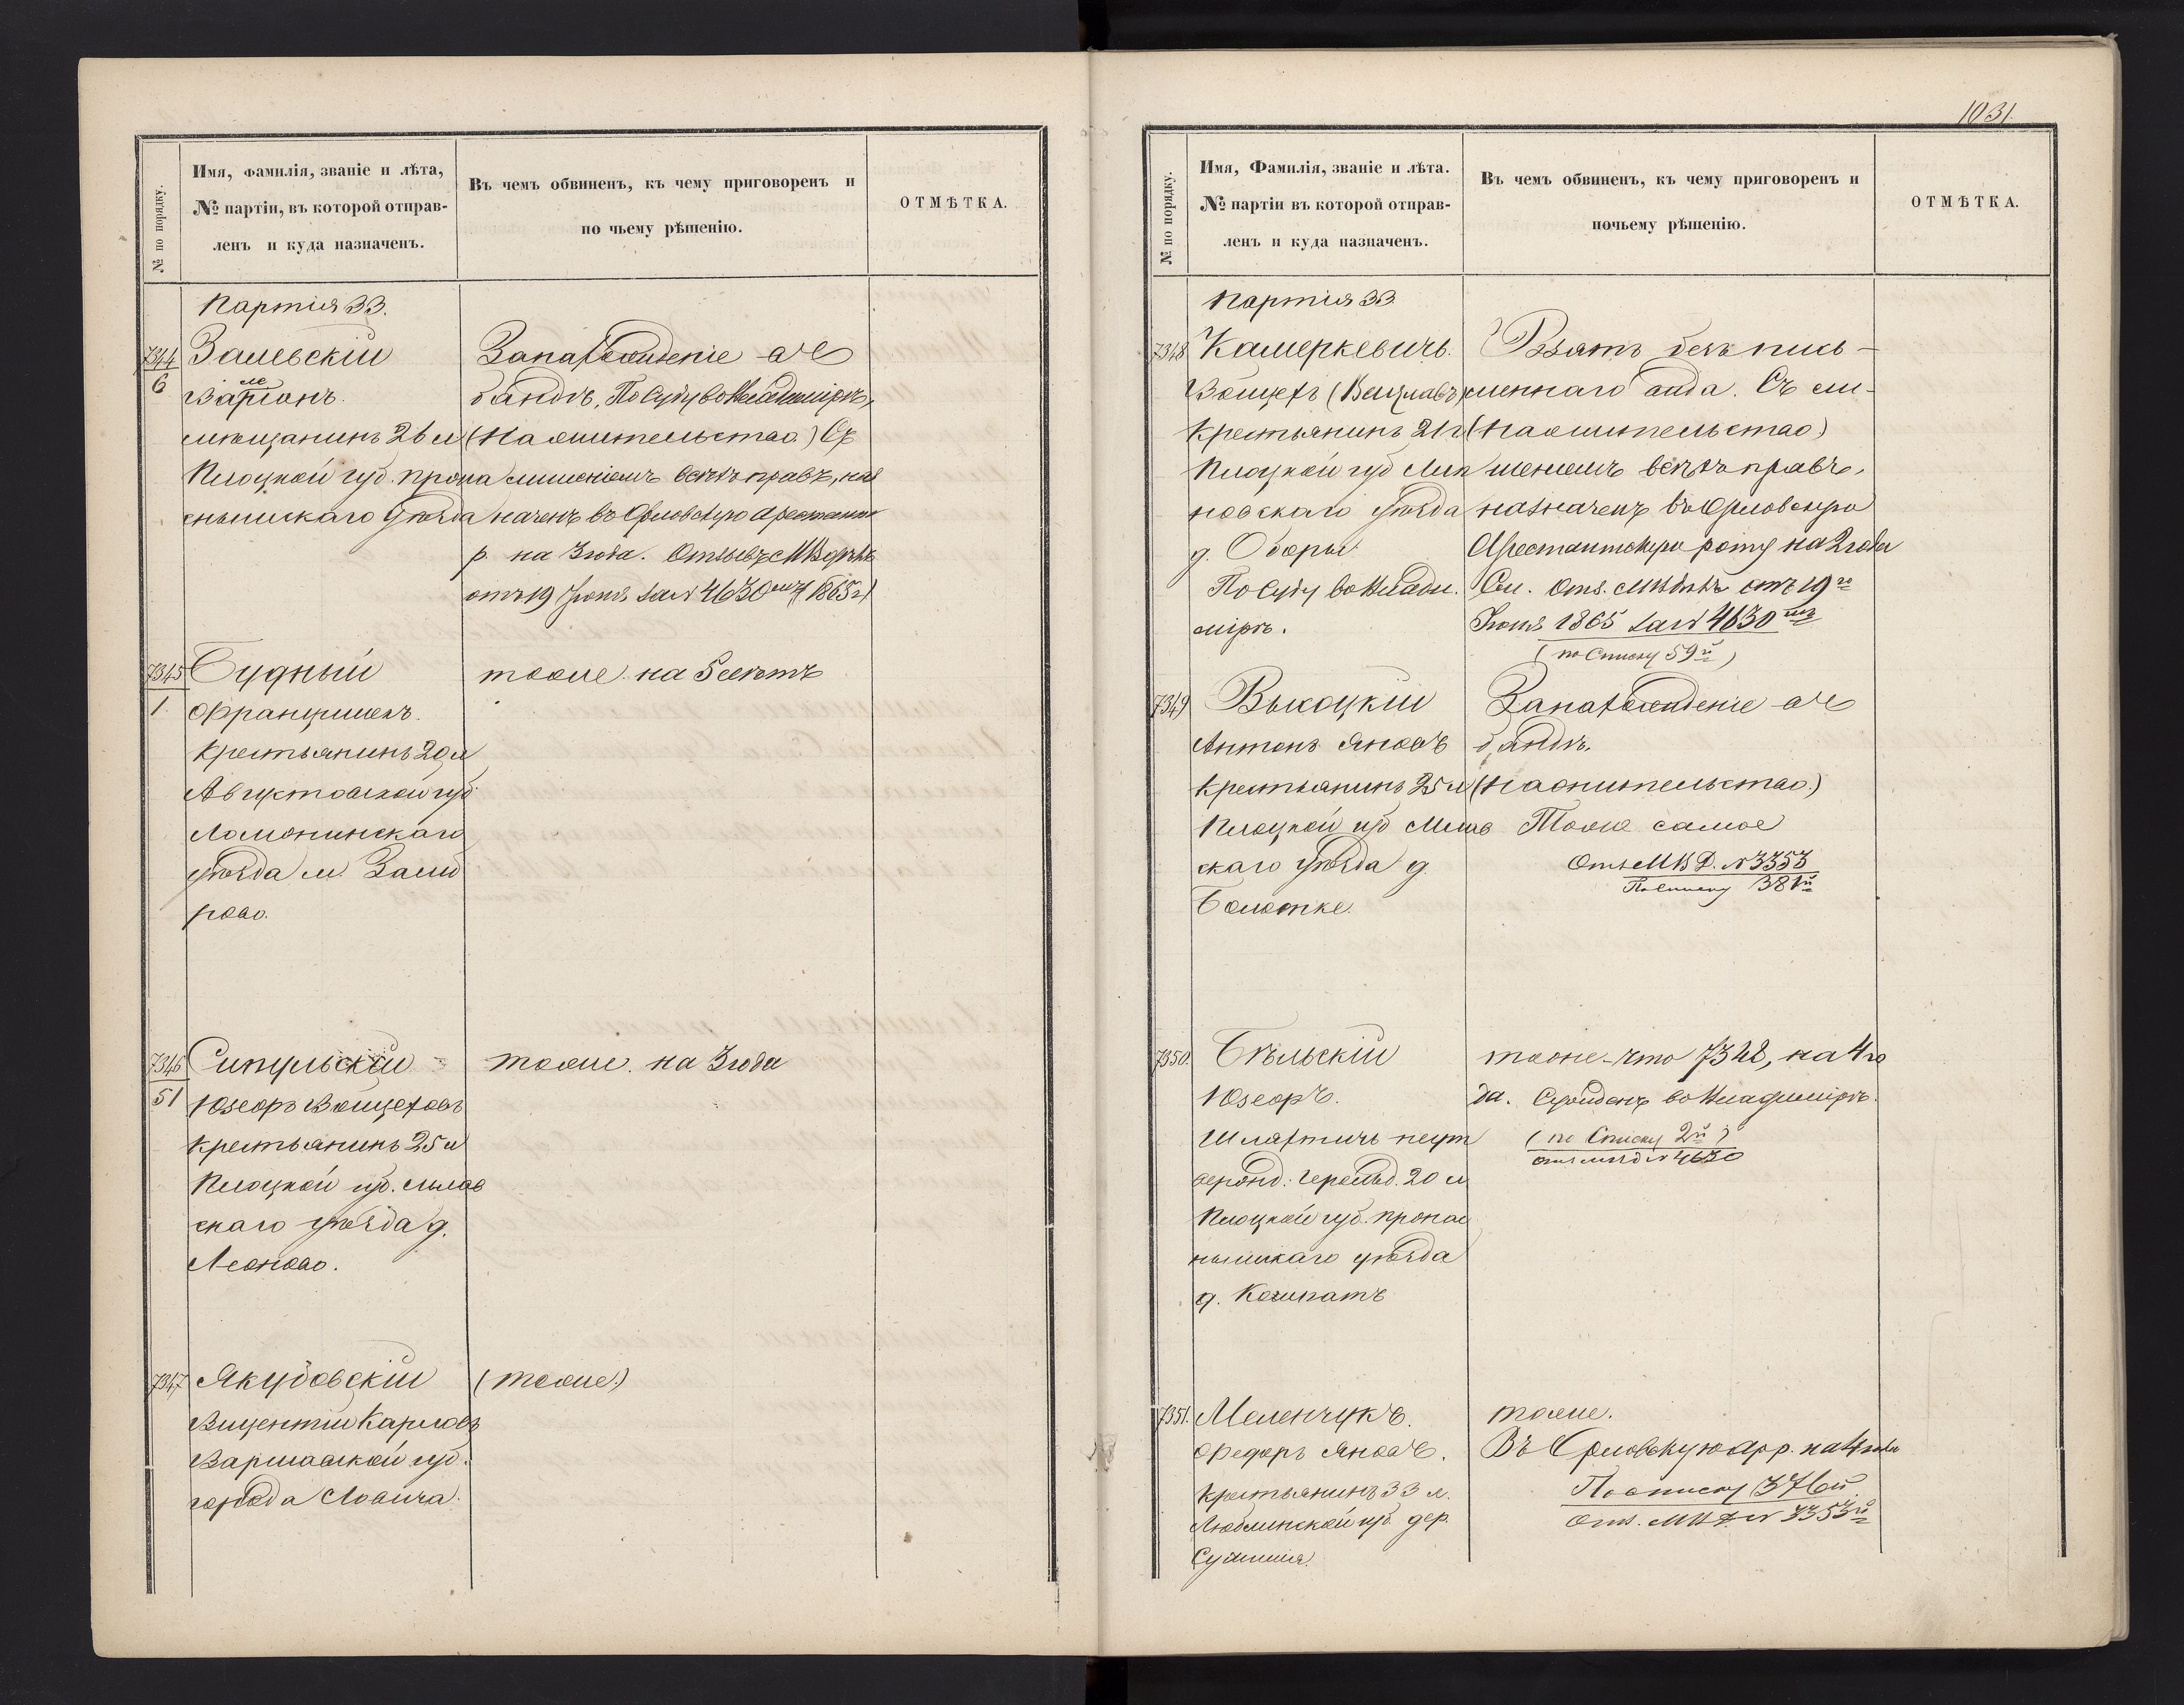 № по порядку.
Имя, фамилія, званіе и лѣта,
№ партіи, въ которой отправ-
ленъ и куда назначенъ.
Въ чемъ обвиненъ, къ чему приговоренъ и
по чьему рѣшенію.
ОТМѢТКА.
Партія 33.
7344
6
Залевскій
мѣщанинъ 26 л
Плоцкой губ. Прона
снышскаго уѣзда
Занахожденіе въ
бандѣ. По Суду во Владимірѣ,
(На жительство) Съ
лишеніемъ всѣхъ правъ, наз
наченъ въ Орловскую Арестант
р. на 3 года. Отзывъ МВоружд
отъ 19 Іюня за № 4630 (1865 г)
7345
1
Будный
Францишекъ.
Крестьянинъ 20 л
Августовской губ
Ломжинскаго
уѣзда м. Замб
рово.
тоже на 5 лѣтъ
7346
51
Сипульскій
Юзефъ Войцеховъ
Крестьянинъ 25 л
Плоцкой губ. Млав
скаго уѣзда д.
Леоново.
тоже. на 3 года
7347
Якубовскій
Вицентій Карловъ
Варшавской губ.
города Ловича.
(тоже)
1031.
№ по порядку.
Имя, Фамилія, званіе и лѣта.
№ партіи въ которой отправ-
ленъ и куда назначенъ.
Въ чемъ обвиненъ, къ чему приговоренъ и
почьему рѣшенію.
ОТМѢТКА.
Партія 33
7348
Камеркевичъ.
Войцехъ (Вацлавъ)
Крестьянинъ 21 г
Плоцкой губ Лип
новскаго уѣзда
д. Оборы
По Суду во Влади.
мірѣ.
Взятъ безъ пись-
меннаго вида. Съ ли-
(На жительство)
шеніемъ всѣхъ правъ,
назначенъ въ Орловскую
Арестантскую роту на 2 года
отъ 19го
Іюня 1865 за № 4630
(по Списку 59й)
7349
Высоцкій
Антонъ Яновъ
Крестьянинъ 25 л
Плоцкой губ Млав
скаго уѣзда д.
Занахожденіе въ
бандѣ.
(На жительство.)
Тоже самое
Отз МВД. № 3353
По списку 381й
7350.
Бѣльскій
Юзефъ.
Шляхтичъ неут
вержд. Герольд. 20 л
Плоцкой губ. Пронас
нышскаго уѣзда
тоже что 7348, на 4 го
да. Сужденъ во Владимірѣ.
(по Списку 2й)
№ 4630
7351.
Меленчукъ.
Федоръ Яновъ.
Крестьянинъ 33 л.
Люблинской губ. дер.
тоже.
Въ Орловскую ар р. на 4 года
По списку 376й
Отз. МВД № 3353й